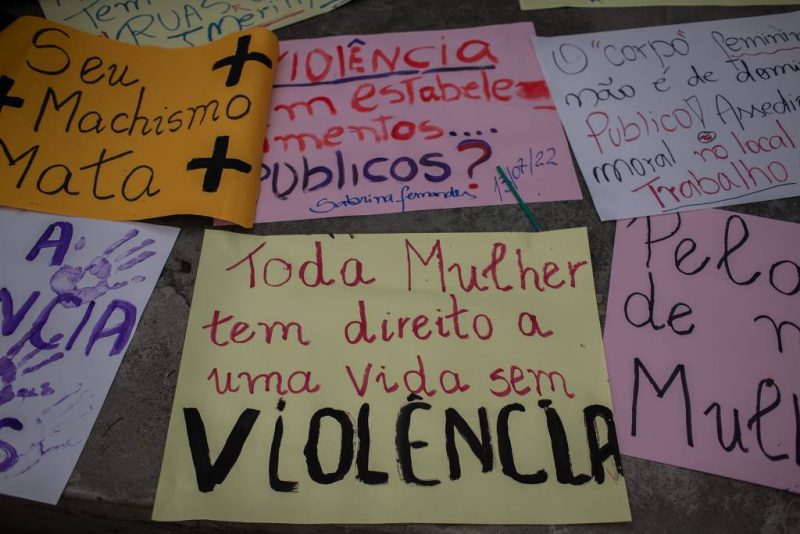 Tem
RUAS
Seu
Machismo
Mata
VIOLÊNCIA
em estabele
cimentos....
PÚBLICOS?
Sabrina fernandes 13/07/22
O "corpo" feminin
não é de domi
Publico! Assedi
moral no local
Trabalho
A
NCIA
S
Toda Mulher
tem direito a
uma vida sem
VIOLÊNCIA
Pelo
de
Mul